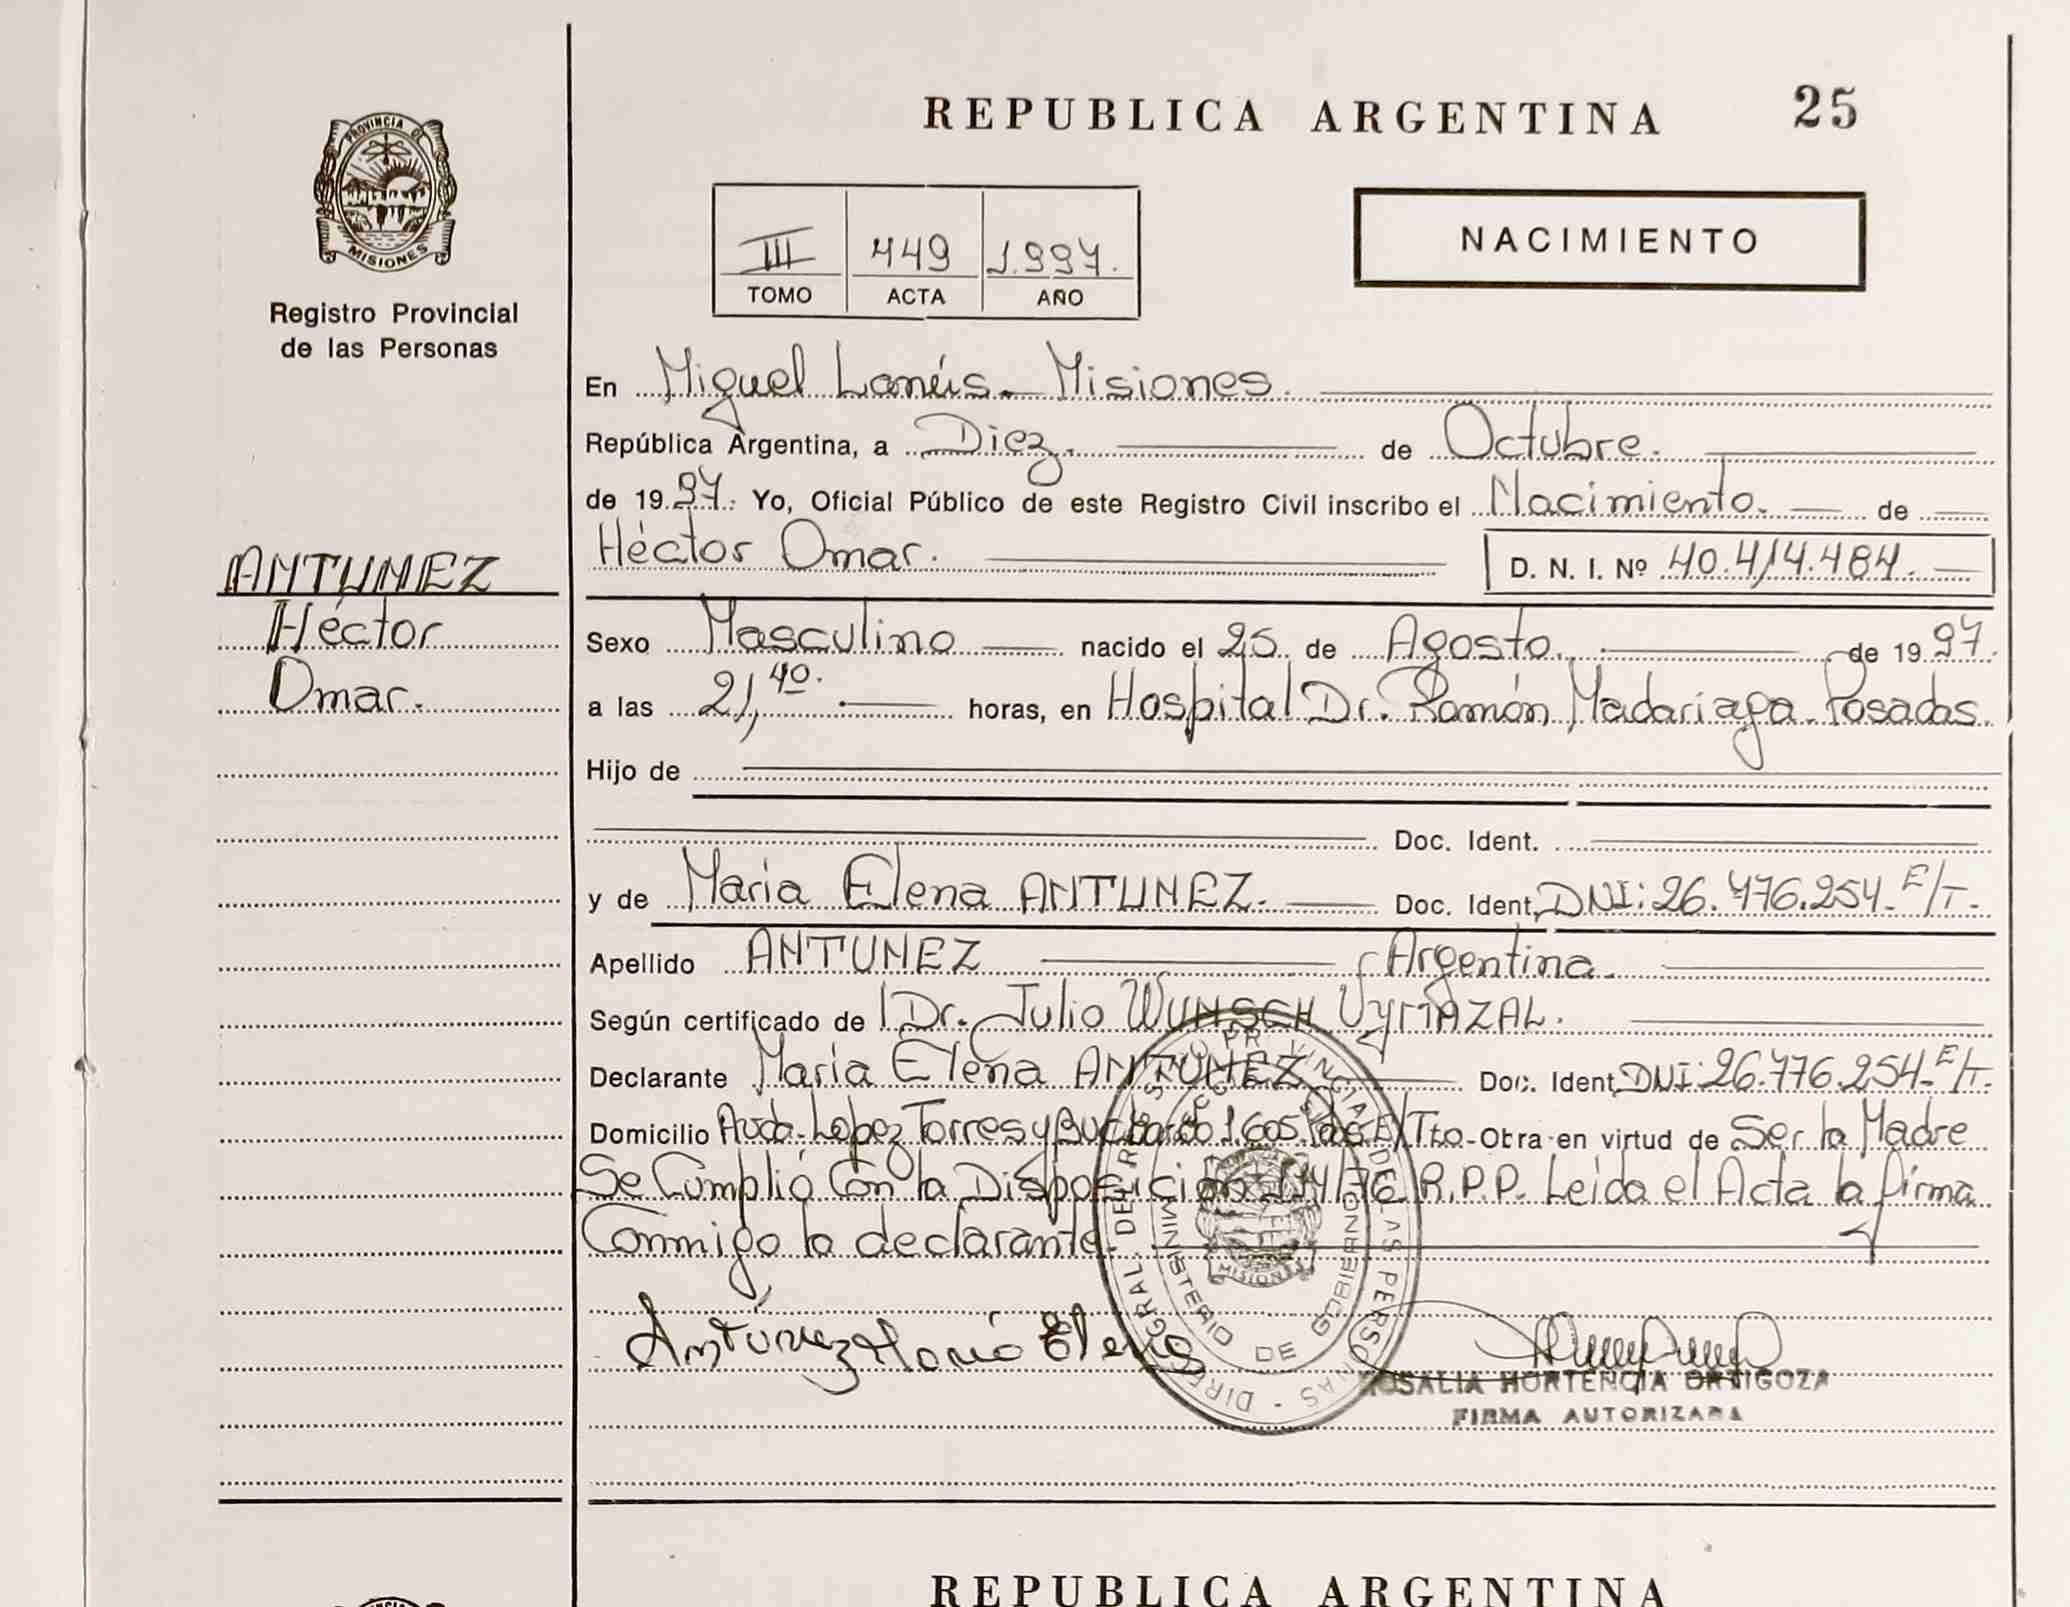 REPUBLICA ARGENTINA
25
PROVINCIA DE
MISIONES
Registro Provincial
de las Personas
III 449 1.997.
TOMO ACTA AÑO
NACIMIENTO
En Miguel Lanús. Misiones.
República Argentina, a Diez. de Octubre.
de 1997. Yo, Oficial Público de este Registro Civil inscribo el Nacimiento. de
Héctor Omar. D. N. I. Nº 40.414.484.
ANTUNEZ
Héctor
Omar.
Sexo Masculino nacido el 25 de Agosto. de 1997.
a las 21,40. horas, en Hospital Dr. Ramón Madariaga. Posadas.
Hijo de
Doc. Ident.
y de Maria Elena ANTUNEZ. Doc. Ident. DNI: 26.776.254. E/T.
Apellido ANTUNEZ Argentina.
Según certificado de Dr. Julio WUNSCH VYMAZAL.
Declarante Maria Elena ANTUNEZ Doc. Ident. DNI: 26.776.254. E/T.
Domicilio Avda. Lopez Torres y 1.605 Obra en virtud de Ser la Madre
Se Cumplió Con la Disposición R.P.P. Leida el Acta la firma
Conmigo la declarante.
Antúnez María Elena
DIREC. GRAL. DEL REGISTRO PROVINCIAL DE LAS PERSONAS
MINISTERIO DE GOBIERNO
MISIONES
ROSALIA HORTENCIA ORTIGOZA
FIRMA AUTORIZADA
REPUBLICA ARGENTINA